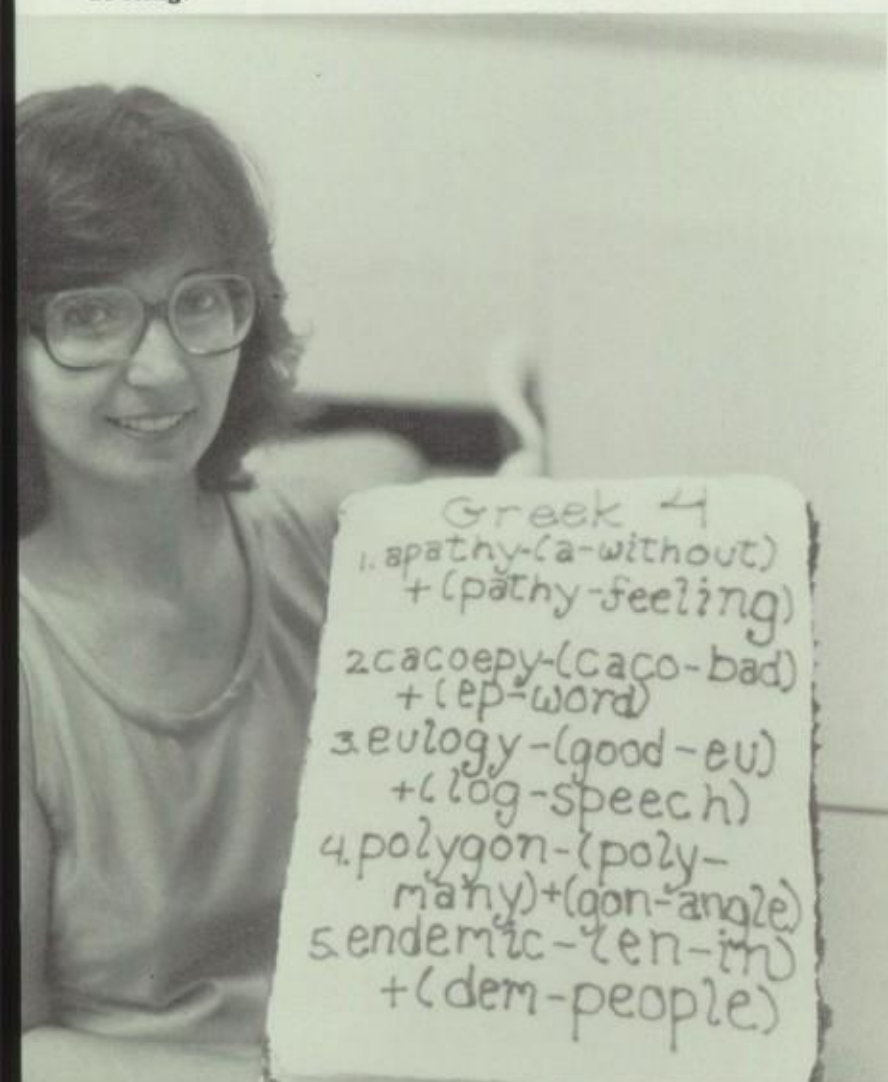 Greek 4
1. apathy-(a-without)
+(pathy-feeling)
2 cacoepy-(caco-bad)
+(ep-word)
3. eulogy-(good-eu)
+(log-speech)
4. polygon-(poly-
many)+(gon-angle)
5. endemic-(en-in)
+(dem-people)